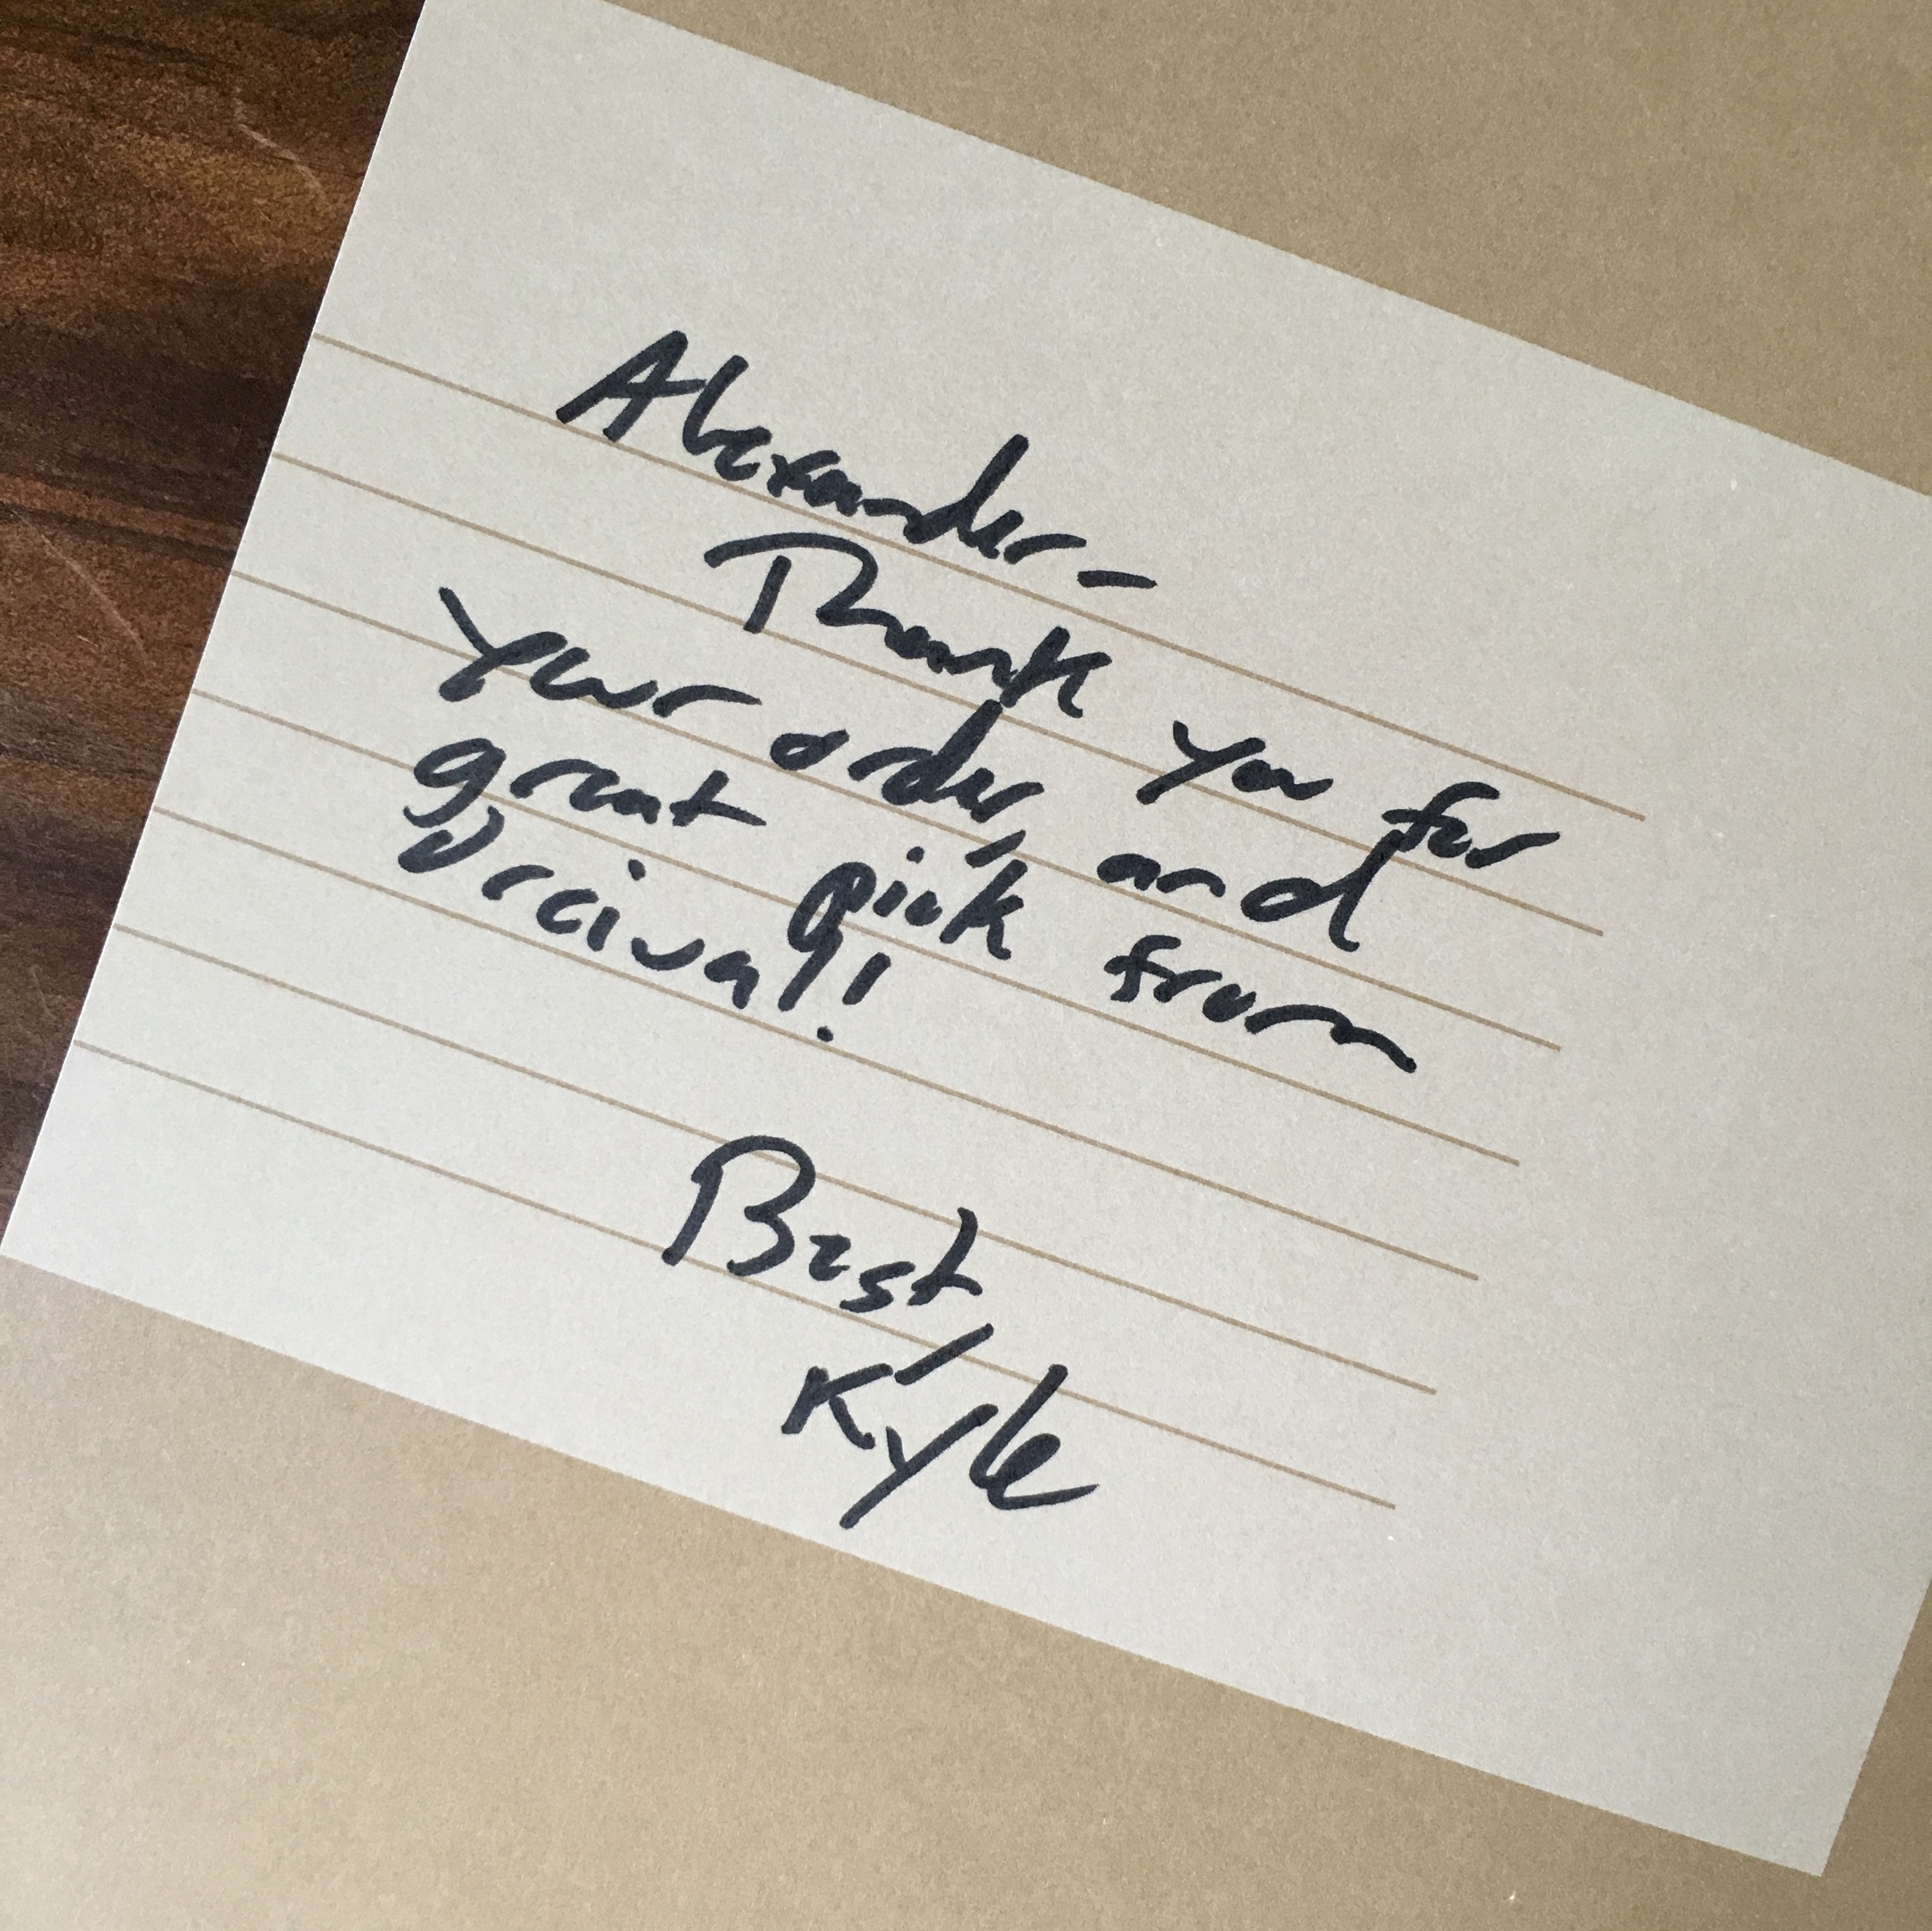 Alexander-
Thank you for
your order, and
great pick from
Drcival!
Best,
Kyle